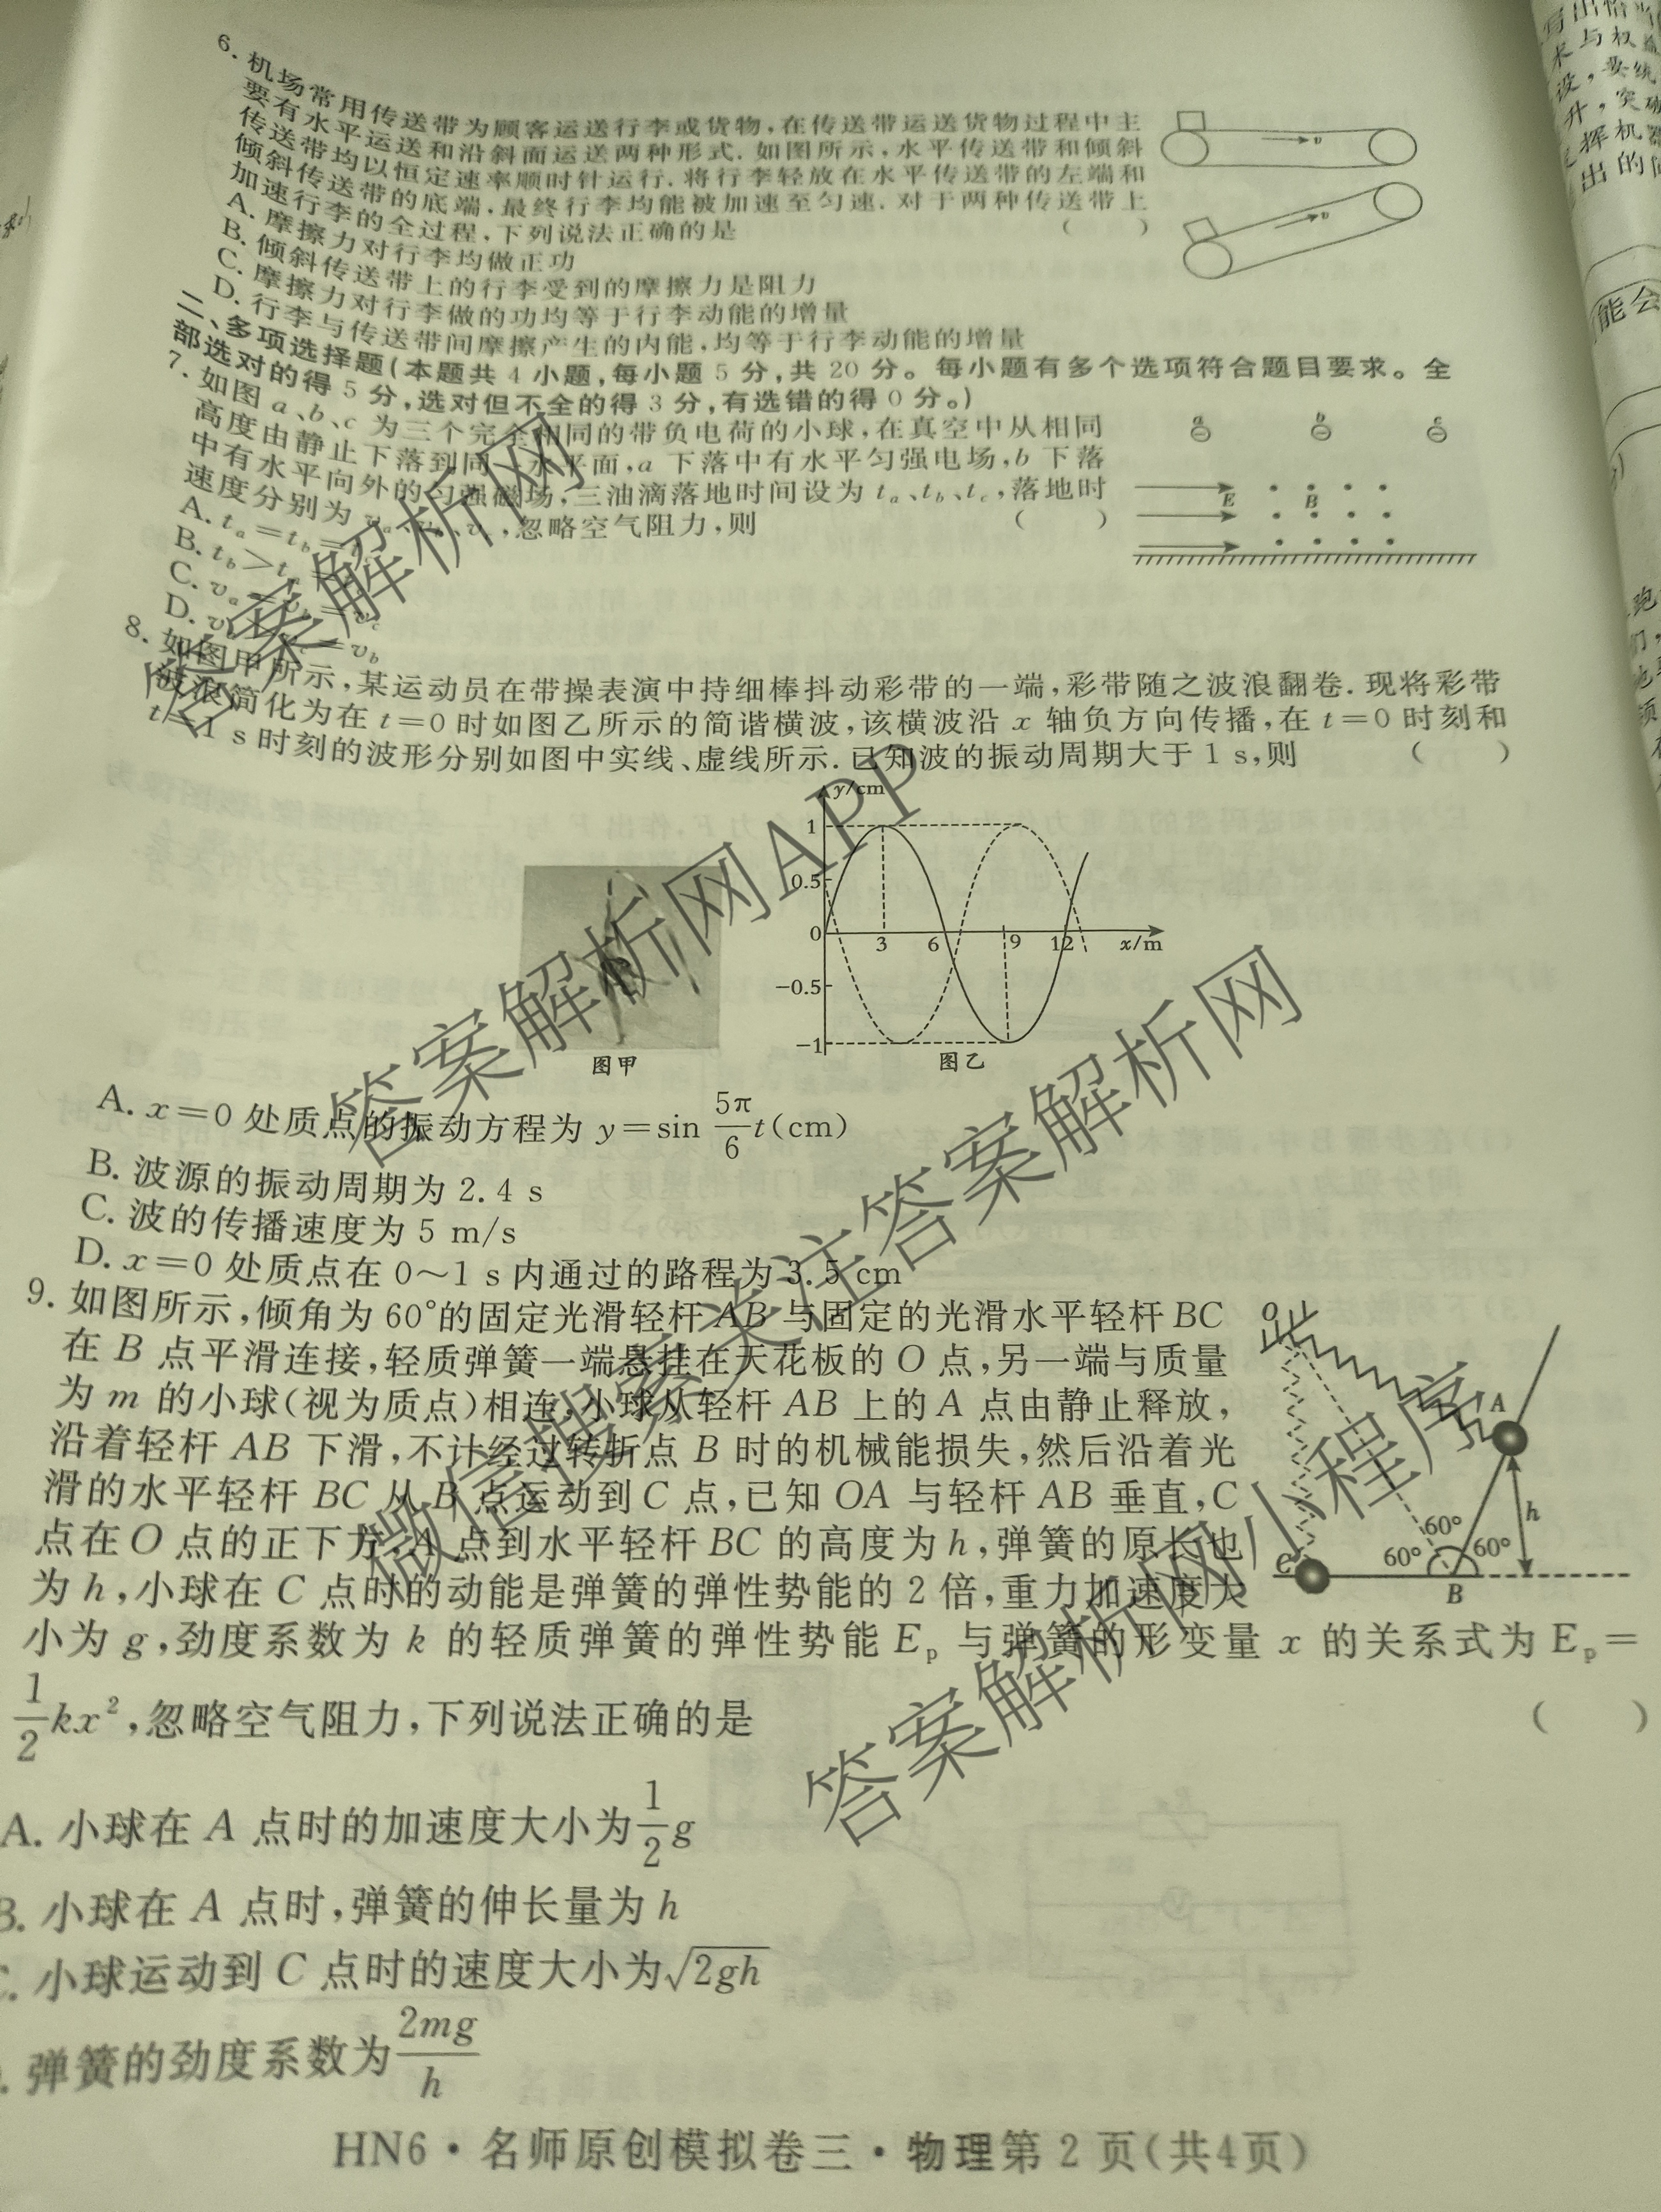 6. 机场常用传送带为顾客运送行李或货物,在传送带运送货物过程中主
要有水平运送和沿斜面运送两种形式. 如图所示,水平传送带和倾斜
传送带均以恒定速率顺时针运行. 将行李轻放在水平传送带的左端和
倾斜传送带的底端,最终行李均能被加速至匀速. 对于两种传送带上
加速行李的全过程,下列说法正确的是 ( )
A. 摩擦力对行李均做正功
B. 倾斜传送带上的行李受到的摩擦力是阻力
C. 摩擦力对行李做的功均等于行李动能的增量
D. 行李与传送带间摩擦产生的内能,均等于行李动能的增量
v
v
二、多项选择题(本题共 4 小题,每小题 5 分,共 20 分。每小题有多个选项符合题目要求。全
部选对的得 5 分,选对但不全的得 3 分,有选错的得 0 分。)
7. 如图 a、b、c 为三个完全相同的带负电荷的小球,在真空中从相同
高度由静止下落到同一水平面,a 下落中有水平匀强电场,b 下落
中有水平向外的匀强磁场,三油滴落地时间设为 tₐ、t_b、t_c,落地时
速度分别为 vₐ、v_b、v_c,忽略空气阻力,则 ( )
A. tₐ=t_b=
B. t_b>tₐ=
C. vₐ=v_b=v_c
D. =v_b
a b c
E B
8. 如图甲所示,某运动员在带操表演中持细棒抖动彩带的一端,彩带随之波浪翻卷. 现将彩带
波浪简化为在 t=0 时如图乙所示的简谐横波,该横波沿 x 轴负方向传播,在 t=0 时刻和
t=1 s 时刻的波形分别如图中实线、虚线所示. 已知波的振动周期大于 1 s,则 ( )
y/cm
1
0.5
0 3 6 9 12 x/m
−0.5
−1
图甲 图乙
A. x=0 处质点的振动方程为 y=sin 5π/6 t(cm)
B. 波源的振动周期为 2.4 s
C. 波的传播速度为 5 m/s
D. x=0 处质点在 0～1 s 内通过的路程为 3.5 cm
9. 如图所示,倾角为 60°的固定光滑轻杆 AB 与固定的光滑水平轻杆 BC
在 B 点平滑连接,轻质弹簧一端悬挂在天花板的 O 点,另一端与质量
为 m 的小球(视为质点)相连,小球从轻杆 AB 上的 A 点由静止释放,
沿着轻杆 AB 下滑,不计经过转折点 B 时的机械能损失,然后沿着光
滑的水平轻杆 BC 从 B 点运动到 C 点,已知 OA 与轻杆 AB 垂直,C
点在 O 点的正下方,A 点到水平轻杆 BC 的高度为 h,弹簧的原长也
为 h,小球在 C 点时的动能是弹簧的弹性势能的 2 倍,重力加速度大
小为 g,劲度系数为 k 的轻质弹簧的弹性势能 Eₚ 与弹簧的形变量 x 的关系式为 Eₚ=
1/2 kx²,忽略空气阻力,下列说法正确的是 ( )
O
A
h
60°
60° 60°
C B
A. 小球在 A 点时的加速度大小为 1/2 g
B. 小球在 A 点时,弹簧的伸长量为 h
C. 小球运动到 C 点时的速度大小为 √2gh
. 弹簧的劲度系数为 2mg/h
HN6·名师原创模拟卷三·物理第 2 页(共4页)
答案解析网
答案解析网APP
微信搜索关注答案解析网
答案解析网小程序